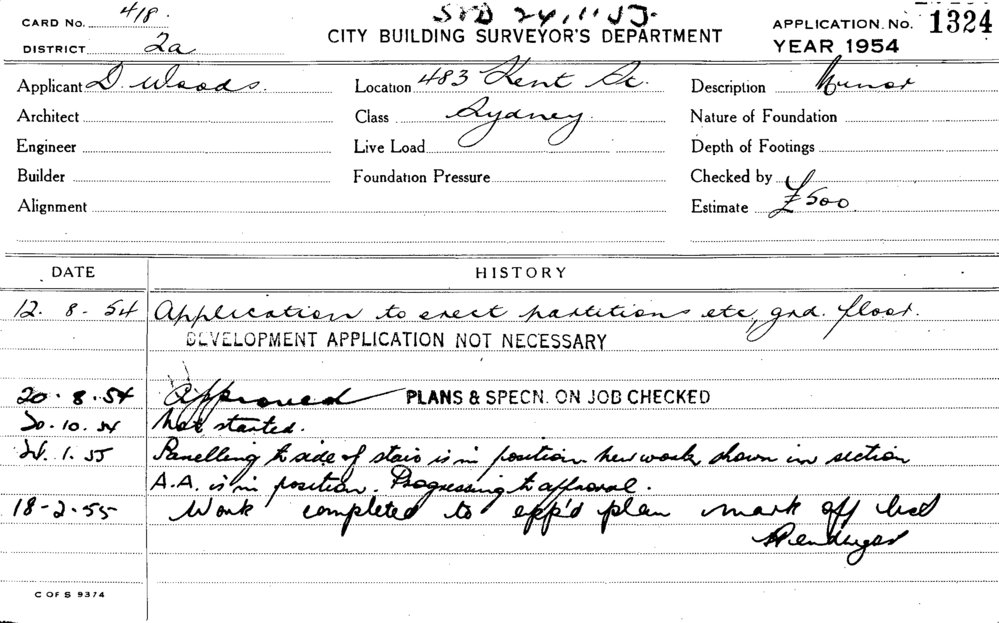 CARD No. 418.
DISTRICT 2a
24.11.55.
CITY BUILDING SURVEYOR'S DEPARTMENT
APPLICATION. No. 1324
YEAR 1954
Applicant D. Woods.
Location 483 Kent St.
Description Minor
Architect
Class Sydney.
Nature of Foundation
Engineer
Live Load
Depth of Footings
Builder
Foundation Pressure
Checked by
Alignment
Estimate £500.
DATE HISTORY
12. 8. 54 Application to erect partitions etc, grd. floor.
DEVELOPMENT APPLICATION NOT NECESSARY
20. 8. 54 Approved PLANS & SPECN. ON JOB CHECKED
20. 10. 54 Not started.
1. 55 Panelling to side of stairs is in position new work shown in section
A.A. is in position. Progressing to approval.
18-2-55 Work completed to app'd plan mark off
C OF S 9374